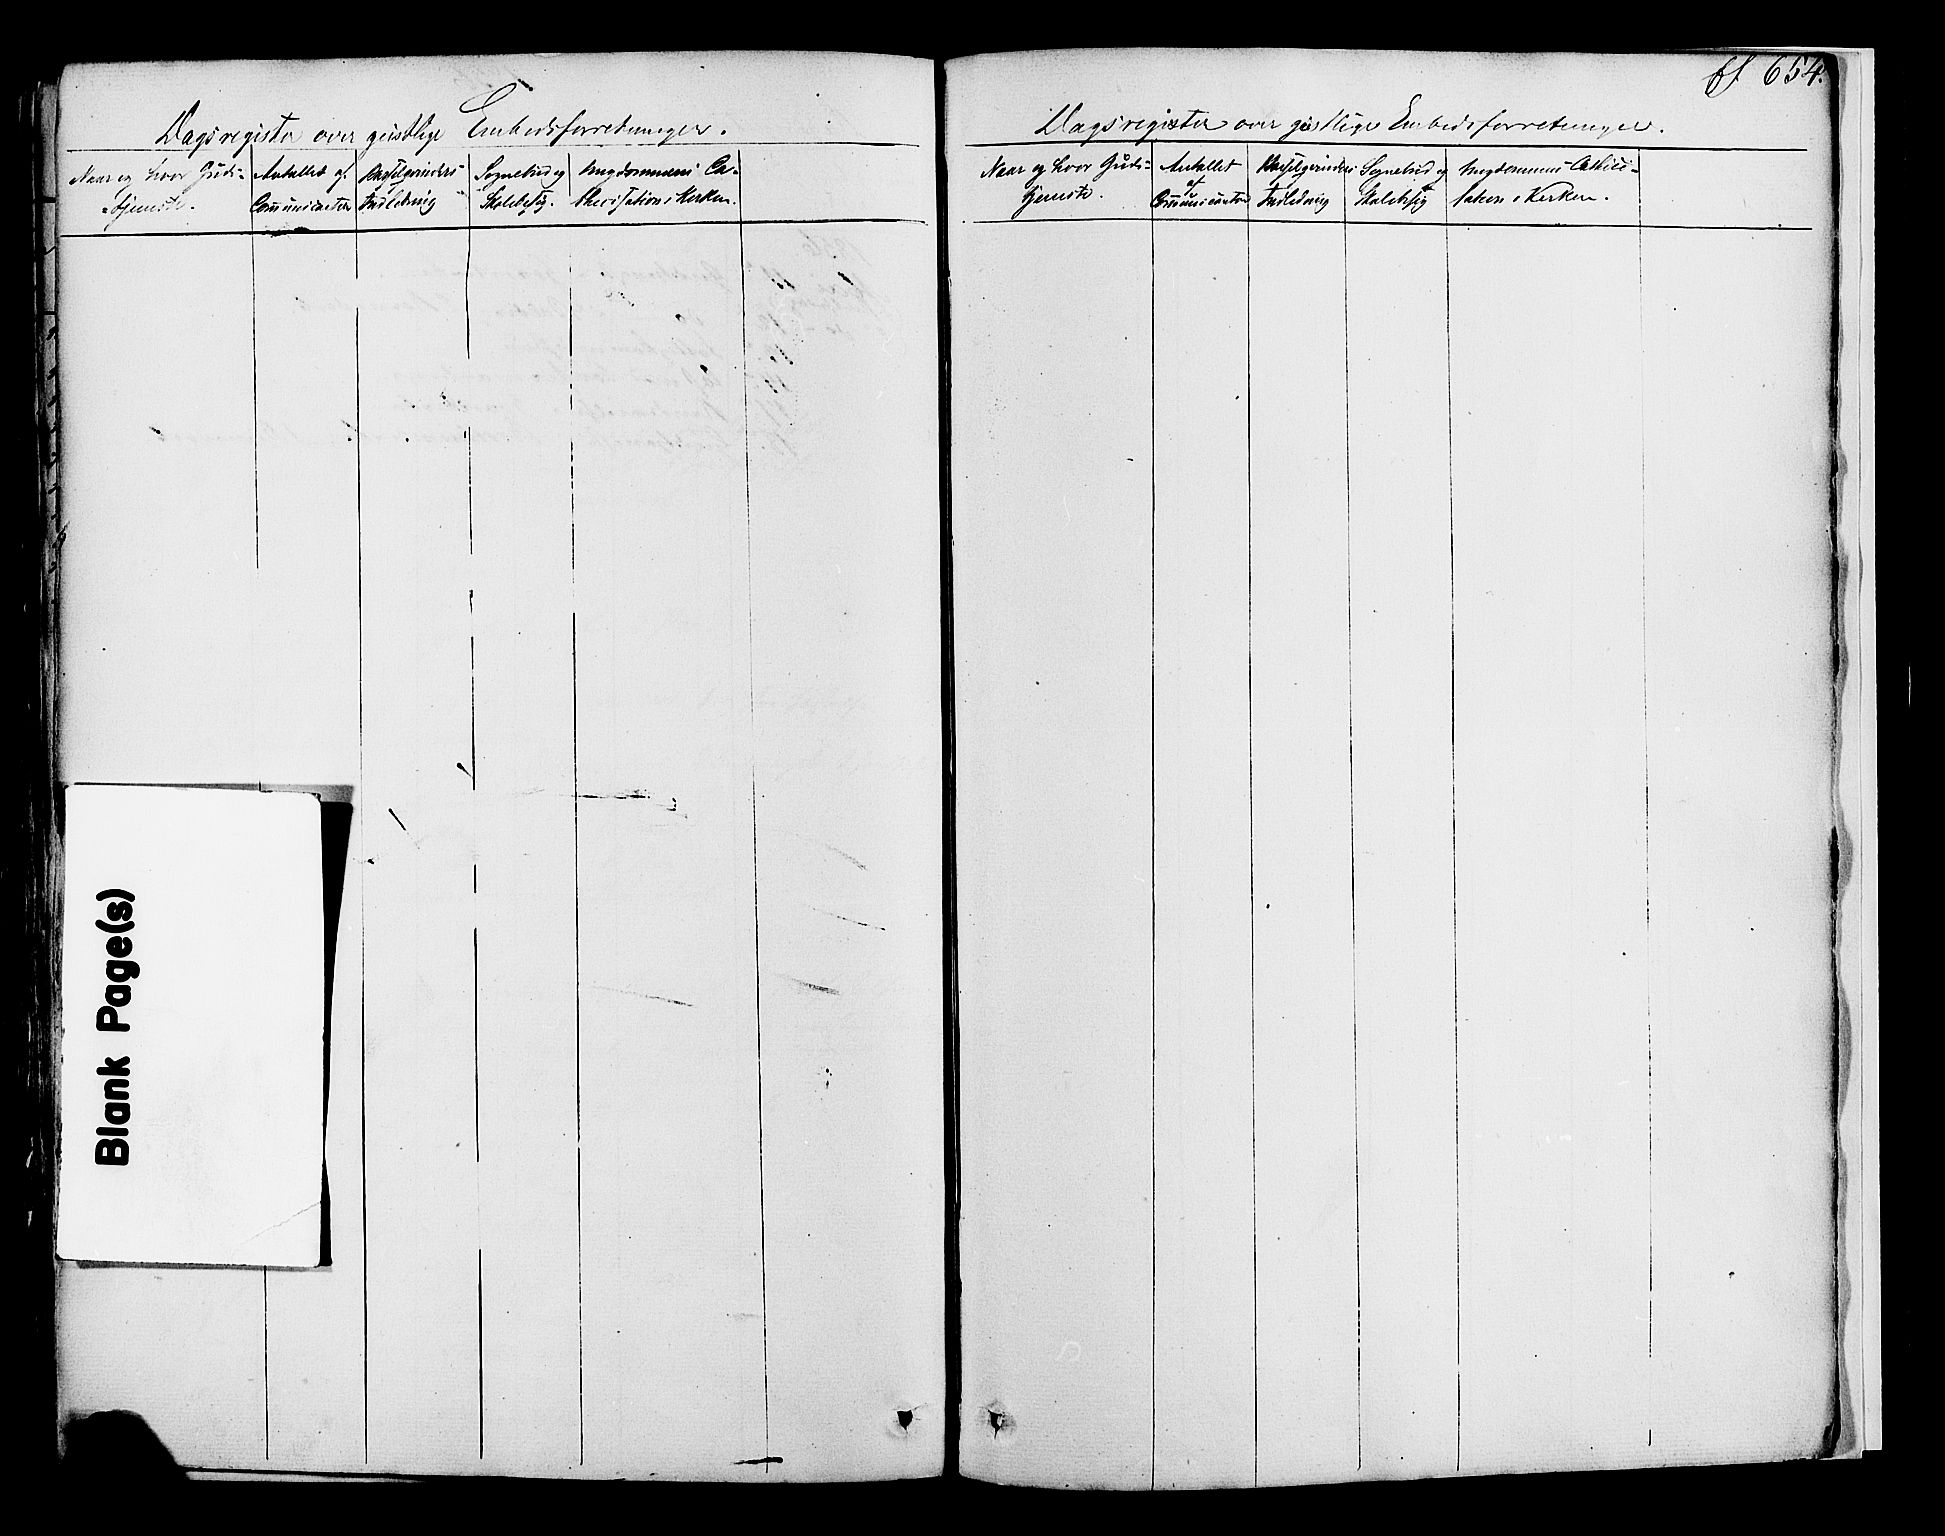 Dagsregister over geistlige Embedsforretninger.
Naar og hvor Guds-
tjeneste.
Antallet af
Communicanter
Barselqvinders
Indledning
Sognebud og
Skolebesøg.
Ungdommens Ca-
thecisation i Kirken.
Blank Page(s)
654.
Dagsregister over geistlige Embedsforretninger.
Naar og hvor Guds-
tjeneste.
Antallet
af
Communicanter
Barselqvinders
Indledning
Sognebud og
Skolebesøg
Ungdommens Catheci-
sation i Kirken.